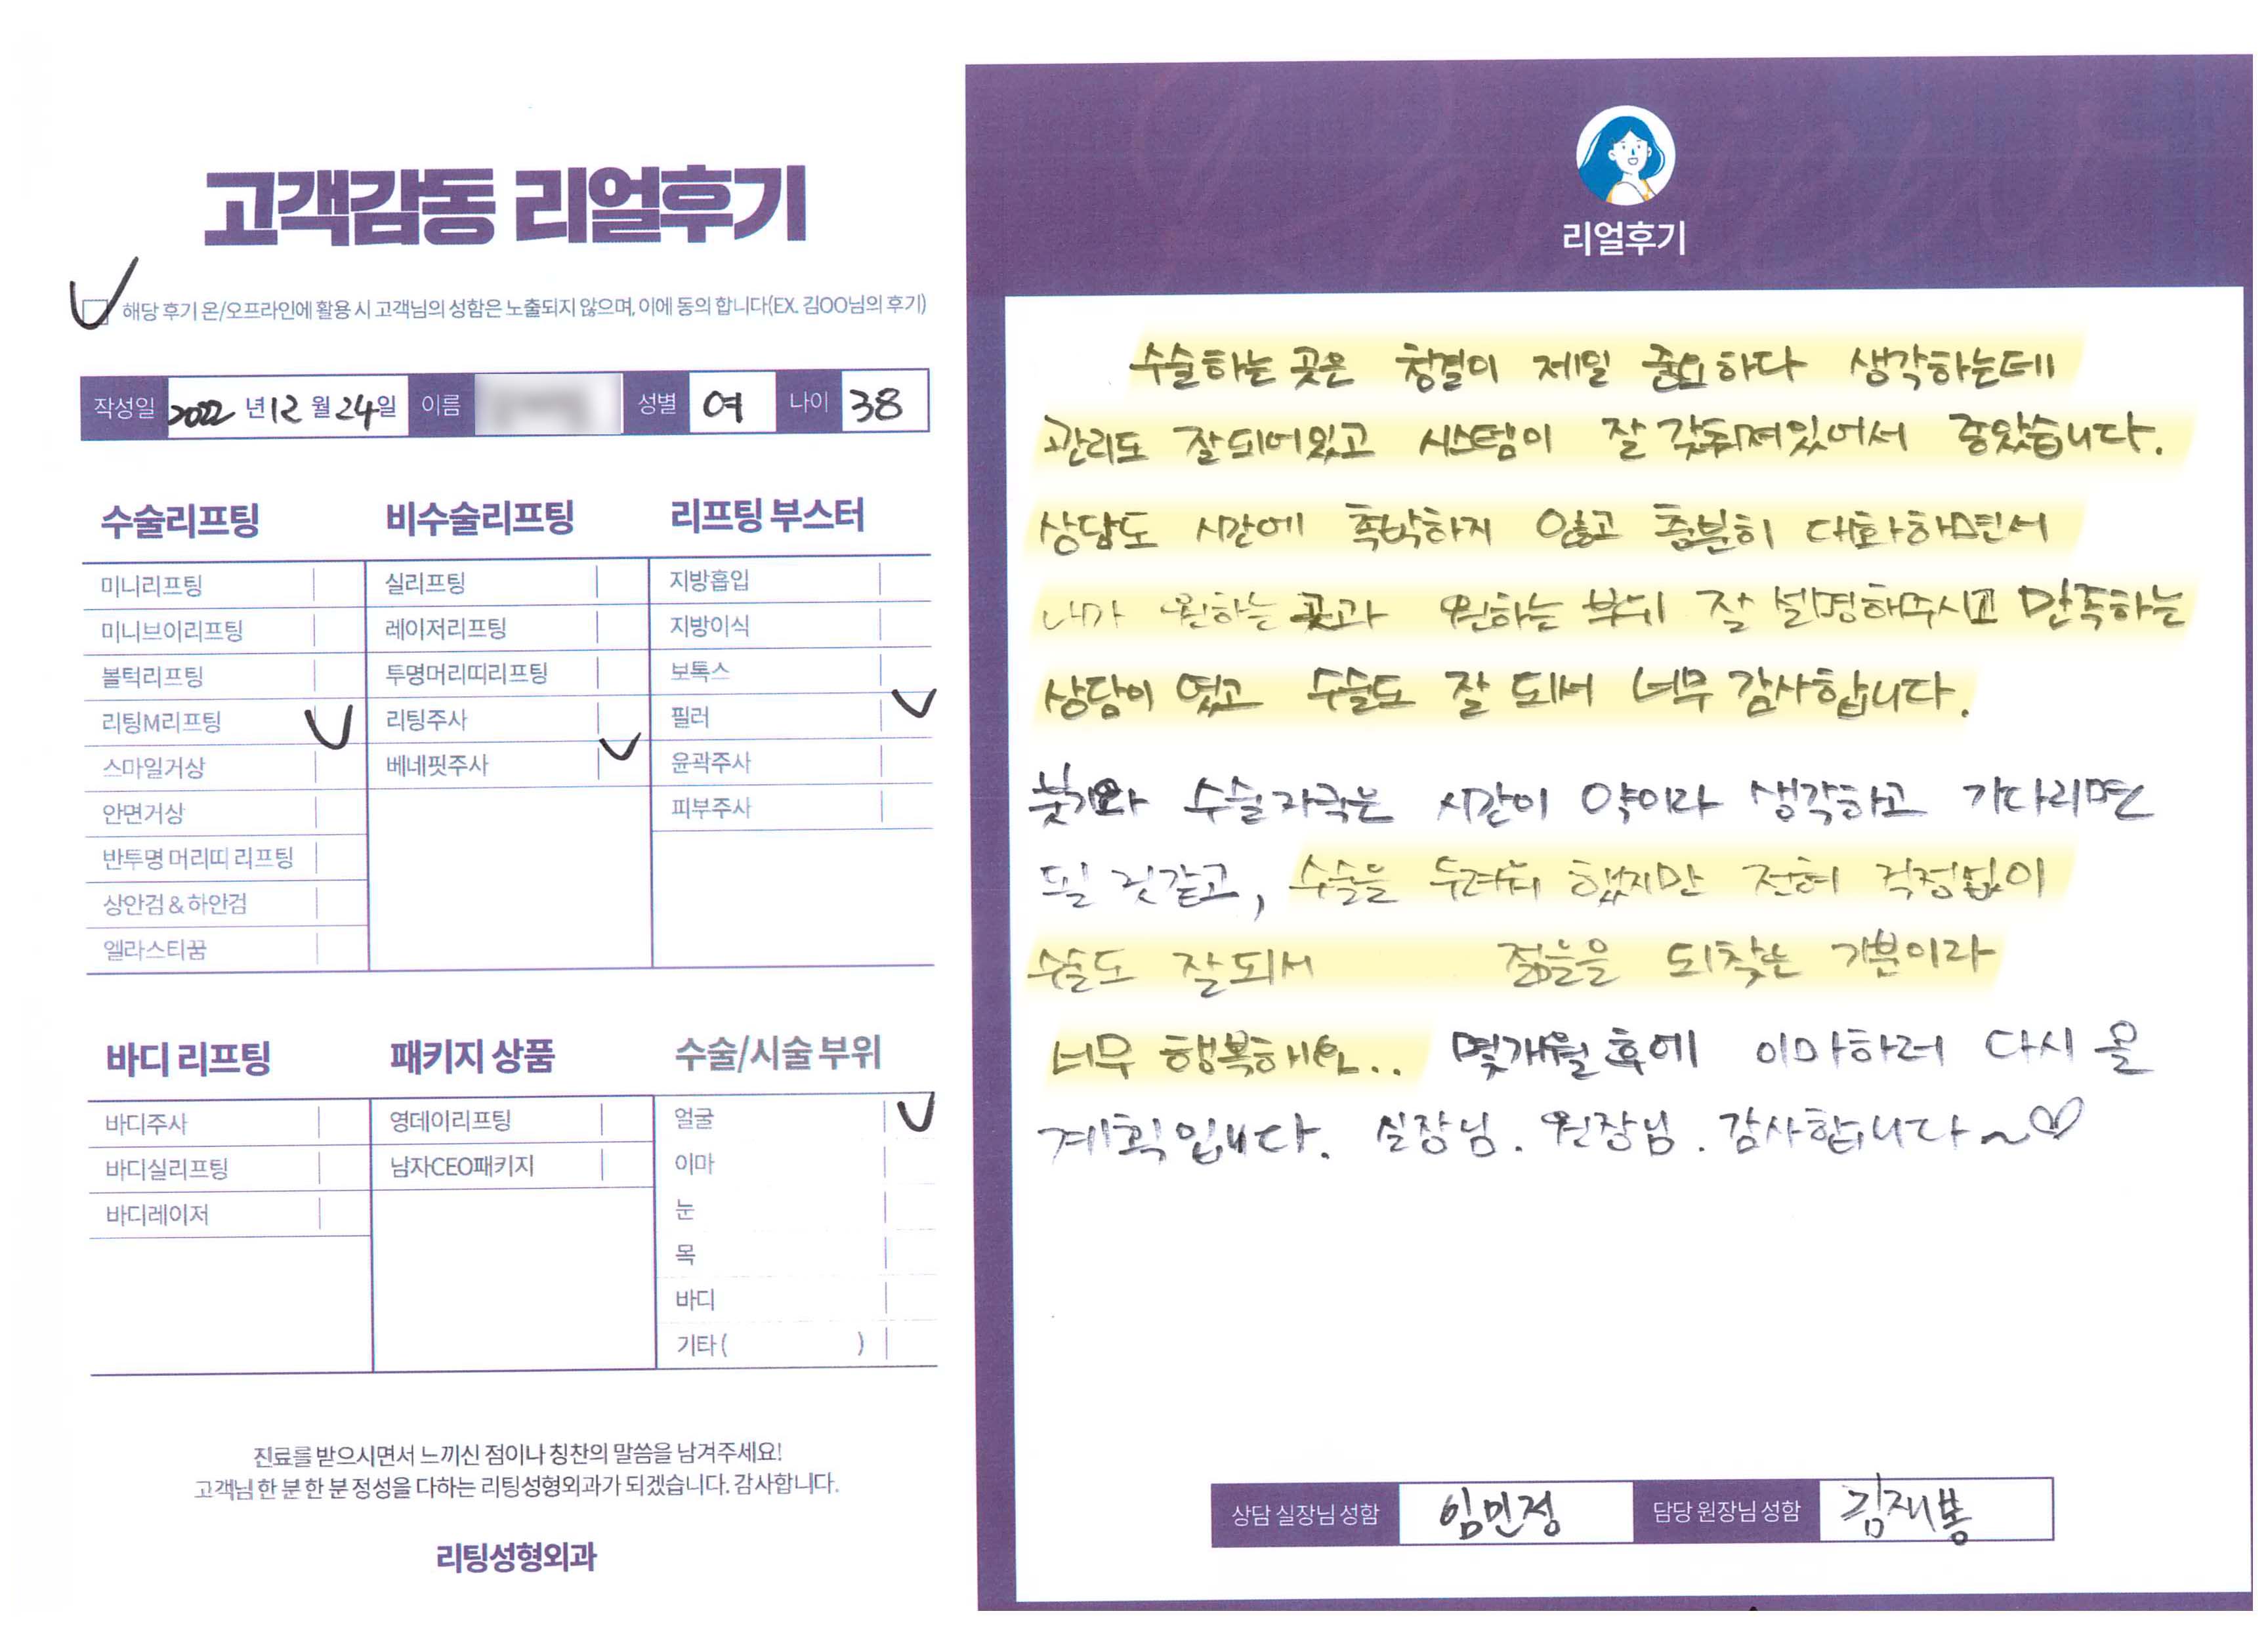 고객감동 리얼후기
해당 후기 온/오프라인에 활용 시 고객님의 성함은 노출되지 않으며, 이에 동의 합니다(EX. 김OO님의 후기)
작성일 2022 년 12 월 24일 이름 성별 여 나이 38
수술리프팅
미니리프팅
미니브이리프팅
볼턱리프팅
리팅M리프팅
스마일거상
안면거상
반투명 머리띠 리프팅
상안검 & 하안검
엘라스티꿈
비수술리프팅
실리프팅
레이저리프팅
투명머리띠리프팅
리팅주사
베네핏주사
리프팅 부스터
지방흡입
지방이식
보톡스
필러
윤곽주사
피부주사
바디 리프팅
바디주사
바디실리프팅
바디레이저
패키지 상품
영데이리프팅
남자CEO패키지
수술/시술 부위
얼굴
이마
눈
목
바디
기타 ( )
진료를 받으시면서 느끼신 점이나 칭찬의 말씀을 남겨주세요!
고객님 한 분 한 분 정성을 다하는 리팅성형외과가 되겠습니다. 감사합니다.
리팅성형외과
리얼후기
수술하는 곳은 청결이 제일 중요하다 생각하는데
관리도 잘되어있고 시스템이 잘 갖춰져있어서 좋았습니다.
상담도 시간에 촉박하지 않고 충분히 대화하면서
내가 원하는 곳과 원하는 부위 잘 설명해주시고 만족하는
상담이 였고 수술도 잘 되서 너무 감사합니다.
붓기와 수술자국은 시간이 약이라 생각하고 기다리면
될 것같고, 수술을 두려워 했지만 전혀 걱정없이
수술도 잘되서 젊음을 되찾는 기분이라
너무 행복해요.. 몇개월 후에 이마하러 다시 올
계획입니다. 실장님. 원장님. 감사합니다~♡
상담 실장님 성함 임민정 담당 원장님 성함 김재봉